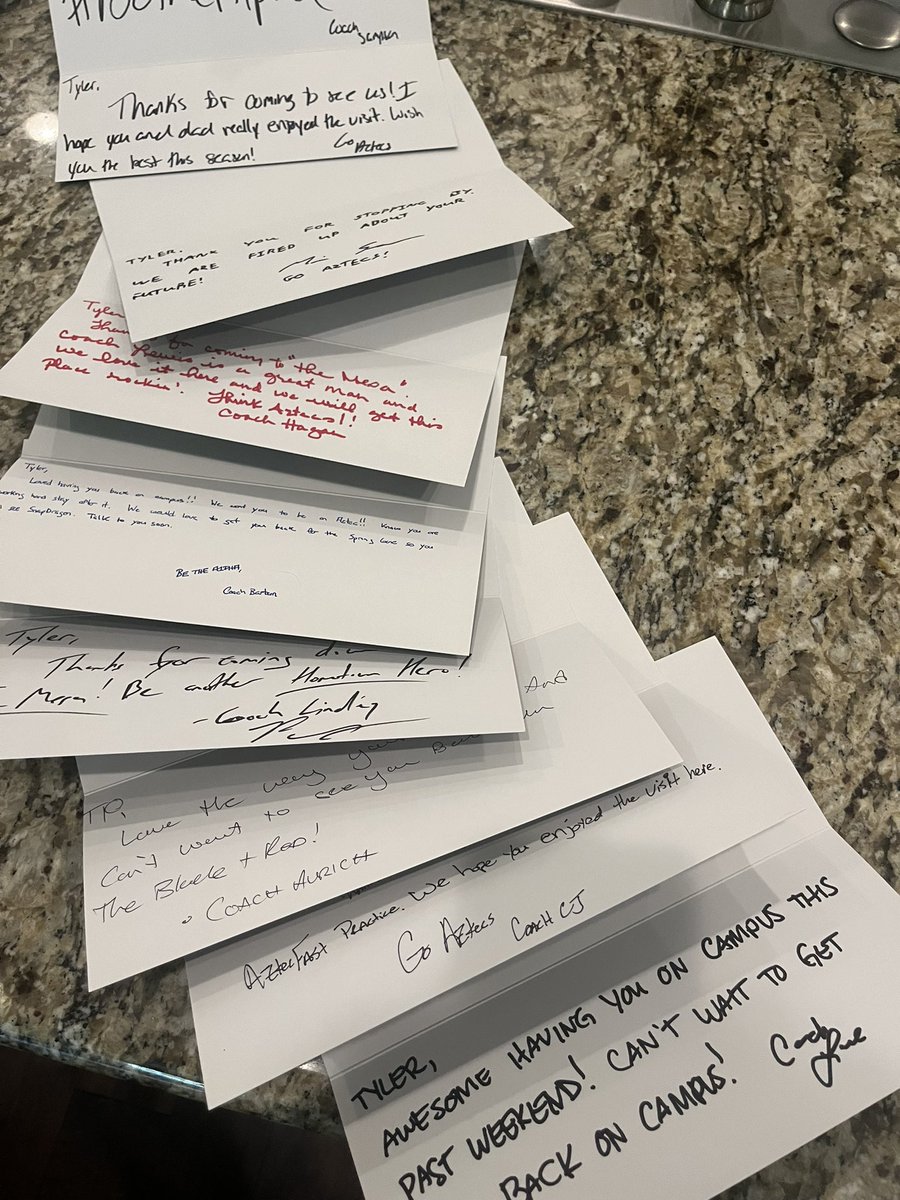 Coach
Tyler,
Thanks for coming to see us! I
hope you and dad really enjoyed the visit. Wish
you the best this season!
Go Aztecs
TYLER.
THANK YOU FOR STOPPING BY.
WE ARE FIRED UP ABOUT YOUR
FUTURE!
GO AZTECS!
Tyler
for coming to "the Mesa".
Coach Lewis is a great man and
we love it here and we will get this
place rockin! Think Aztecs!!
Coach Hagan
Tyler,
Loved having you back on campus!! We want you to be an Aztec!! Know you are
working hard stay after it. We would love to get you back for the Spring Game so you
see SnapDragon. Talk to you soon.
BE THE
Coach
Tyler,
Thanks for coming
Mesa! Be another Hometown Hero!
- Coach Lindley
And
Love the way
Can't wait to see you
The Black + Red!
COACH AURICH
AztecFAST Practice. We hope you enjoyed the visit here.
Go Aztecs
Coach CJ
TYLER,
AWESOME HAVING YOU ON CAMPUS THIS
PAST WEEKEND! CAN'T WAIT TO GET
BACK ON CAMPUS!
Coach